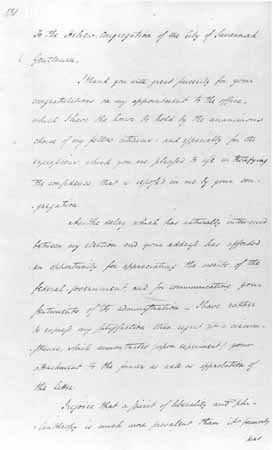 131
To the Hebrew Congregation of the City of Savannah
Gentlemen.
I thank you with great sincerity for your
congratulations on my appointment to the office,
which I have the honor to hold by the unanimous
choice of my fellow-citizens: and especially for the
expressions which you are pleased to use in testifying
the confidence that is reposed in me by your con-
gregation.
As the delay which has naturally intervened
between my election and your address has afforded
an opportunity for appreciating the merits of the
federal-government, and for communicating your
sentiments of its administration — I have rather
to express my satisfaction than regret at a circum-
stance, which demonstrates (upon experiment) your
attachment to the former as well as approbation of
the latter.
I rejoice that a spirit of liberality and phi-
lanthropy is much more prevalent than it formerly
was